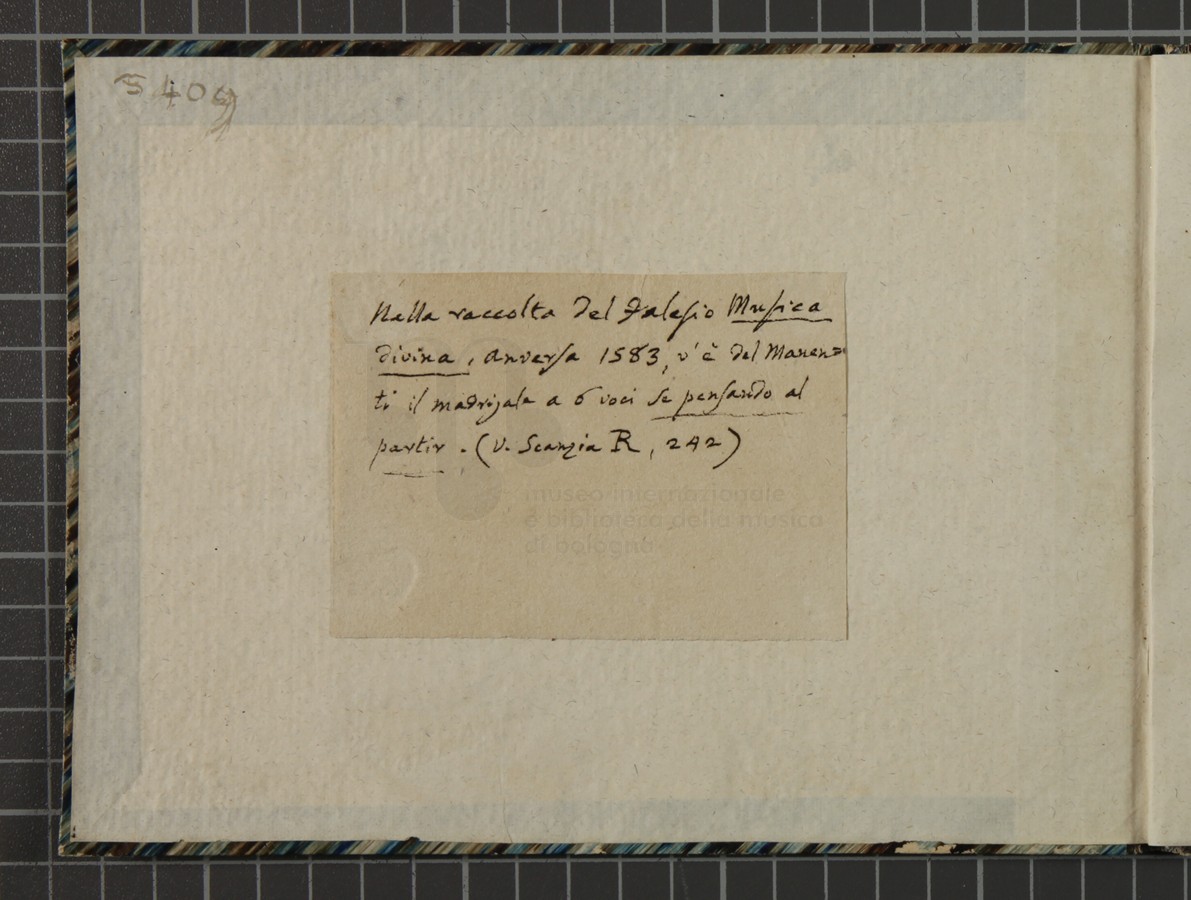 5409
Nella raccolta del Falesio Musica
divina, Anversa 1583, v'è del Manen=
ti il madrigale a 6 voci Se pensando al
partir. (V. Scanzia R, 242)
museo internazionale
e biblioteca della musica
di bologna